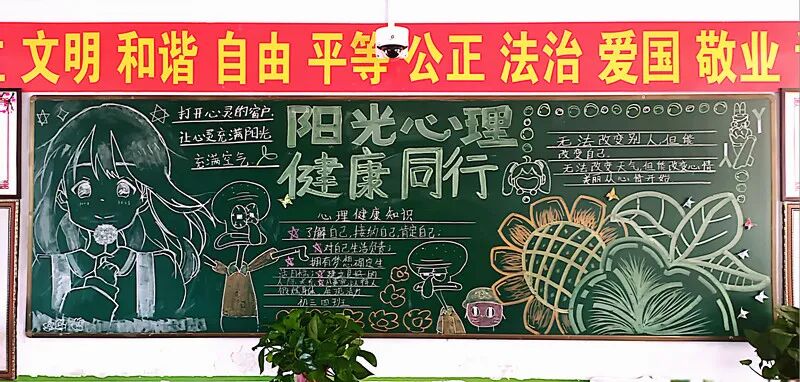 文明 和谐 自由 平等 公正 法治 爱国 敬业
打开心灵的窗户
让心灵充满阳光
充满空气
阳光心理
健康同行
心理健康知识
了解自己,接纳自己,肯定自己;
对自己生活负责;
拥有梦想,确定生
活目标;建立良好的
初三四班
无法改变别人,但能
改变自己
无法改变天气,但能改变心情
美丽从心情开始